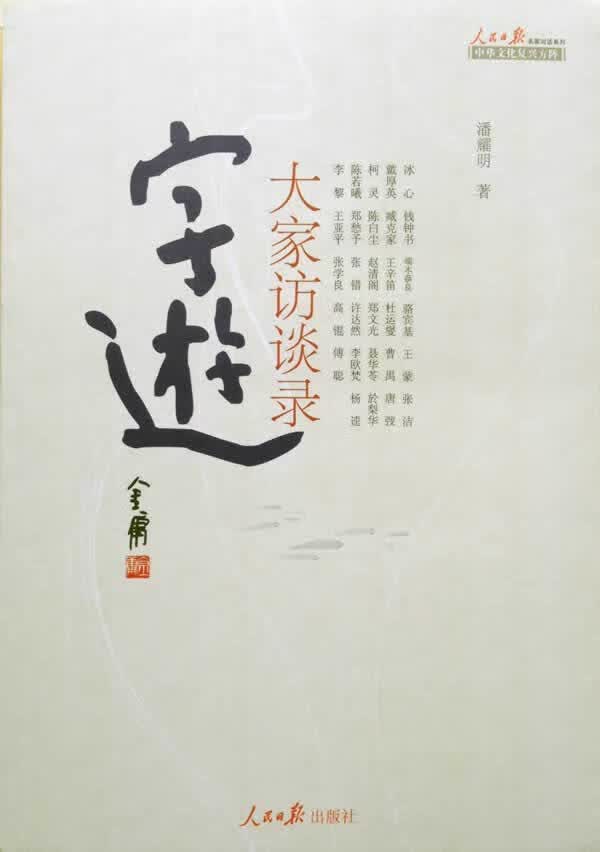 人民日报 名家对话系列
中华文化复兴方阵
潘耀明 著
冰 心 钱钟书 端木蕻良 骆宾基 王 蒙 张 洁
戴厚英 臧克家 王辛笛 杜运燮 曹 禺 唐 弢
柯 灵 陈白尘 赵清阁 郑文光 聂华苓 於梨华
陈若曦 郑愁予 张 错 许达然 李欧梵 杨 逵
李 黎 王亚平 张学良 高 锟 傅 聪
大家访谈录
字遊
金庸
人民日报出版社